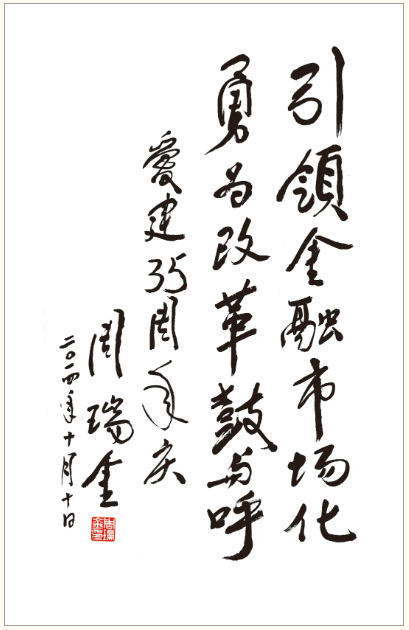 引领金融市场化
勇为改革鼓与呼
爱建35周年庆
周瑞金
二〇一四年十月十日
周瑞金